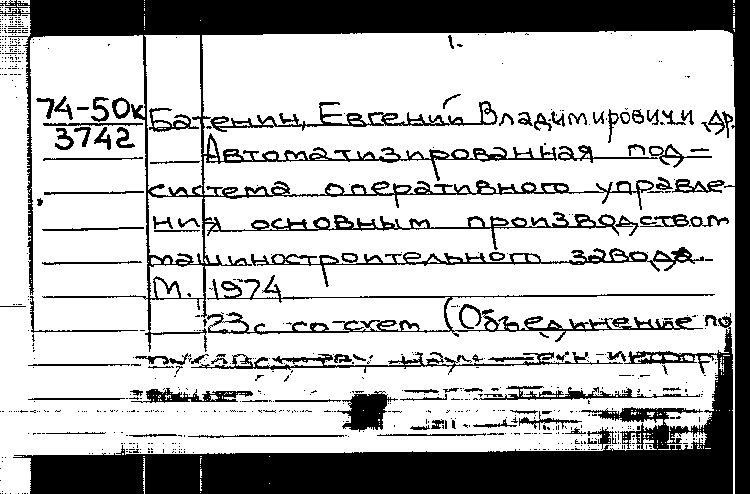 1.
74-50к
3742
Батенин, Евгений Владимирович и др.
Автоматизированная под-
система оперативного управле-
ния основным производством
машиностроительного завода.
М. 1974
23с со схем (Объединение по
науч.-техн. информ